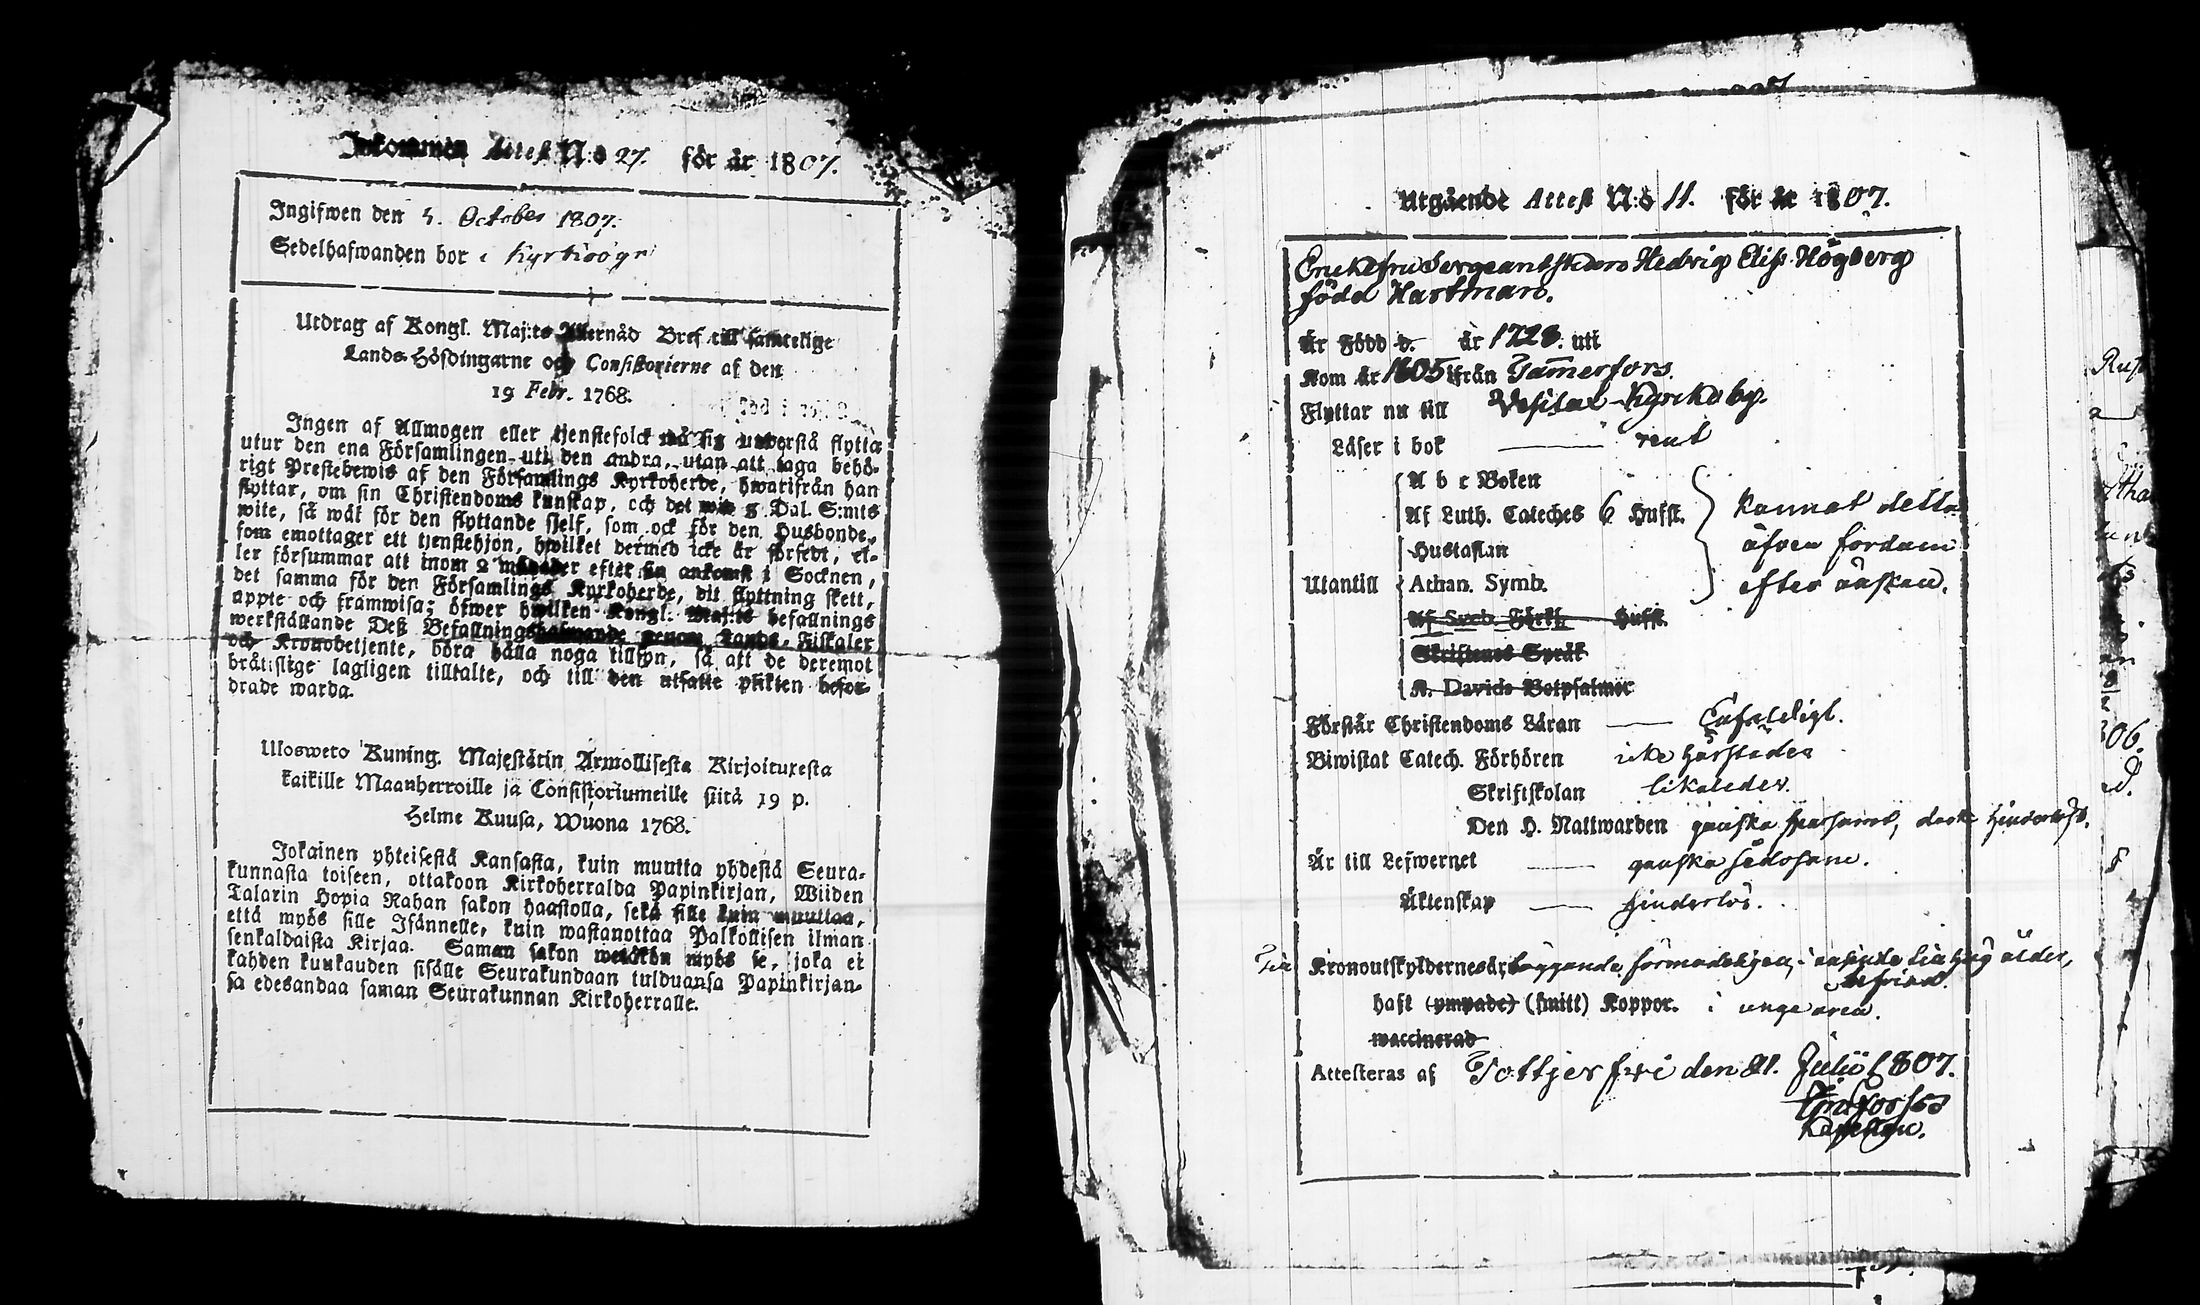 Inkommen Attest N:o 27. för år 1807.
Ingifwen den 5. October 1807.
Sedelhafwanden bor i Kyrkiogr
Utdrag af Kongl. Maj:ts Allernåd Bref till samtelige
Lands-Höfdingarne och Consistorierne af den
19 Febr. 1768.
Ingen af Allmogen eller tjenstefolck må sig understå flytta
utur den ena Församlingen uti den andra, utan att taga behö-
rigt Prestebewis af den Församlings Kyrkoherde, hwarifrån han
flyttar, om sin Christendoms kunskap, och det wid 5 Dal. S:mts
wite, så wäl för den flyttande sjelf, som ock för den Husbonde,
som emottager ett tjenstehjon, hwilket dermed icke är försedt, el-
ler försummar att inom 2 månader efter sin ankomst i Socknen,
det samma för den Församlings Kyrkoherde, dit flyttning skett,
uppte och framwisa; öfwer hwilken Kongl. Maj:ts befallnings
werkställande Deß Befallningshafwande genom Lands-Fiskaler
och Kronobetjente, böra hålla noga tillsyn, så att de deremot
bråtislige lagligen tilltalte, och till den utsatte plikten befor-
drade warda.
Ulosweto Kuning. Majestätin Armollisesta Kirjoituxesta
kaikille Maanherroille ja Consistoriumeille siitä 19 p.
Helme Kuusa, Wuona 1768.
Jokainen yhteisestä Kansasta, kuin muutta yhdestä Seura-
kunnasta toiseen, ottakoon Kirkoherralda Papinkirjan, Wiiden
Talarin Hopia Rahan sakon haastolla, sekä sille kuin muuttaa,
että myös sille Isännelle, kuin wastanottaa Palkollisen ilman
senkaldaista Kirjaa. Saman sakon wetäkön myös se, joka ei
kahden kuukauden sisälle Seurakundaan tulduansa Papinkirjan-
sa edesandaa saman Seurakunnan Kirkoherralle.
Utgående Attest N:o 11. för år 1807.
Enckefru Sergeantskan Hedvig Elis. Högberg
född Hartman.
Är Född d. år 1728. uti
Kom år 1805 ifrån Tam̄erfors.
Flyttar nu till Vesilax Kyrckoby.
Läser i bok rent
A b c Boken
Af Luth. Cateches 6 Hufst.
Hustaflan
Utantill Athan. Symb.
Af Sveb. Förkl. Hufst.
Skriftenes Språk
K. Davids Botpsalmer
kunnat detta
äfven fordom
efter önskan.
Förstår Christendoms Läran Enfaldigt.
Biwistat Catech. Förhören icke härstädes
Skriftskolan likaledes.
Den H. Nattwarden ganska sparsamt, dock hinderlöst.
Är till Lefwernet ganska sedosam.
Äktenskap hinderlös.
Kronoutskyldernes ärläggande, förmodeligen,
befriad.
haft (ympade) (smitt) Koppor. i unga åren.
waccinerad
Attesteras af Tottjerfwi den 21. Julii 1807.
Kapellan.